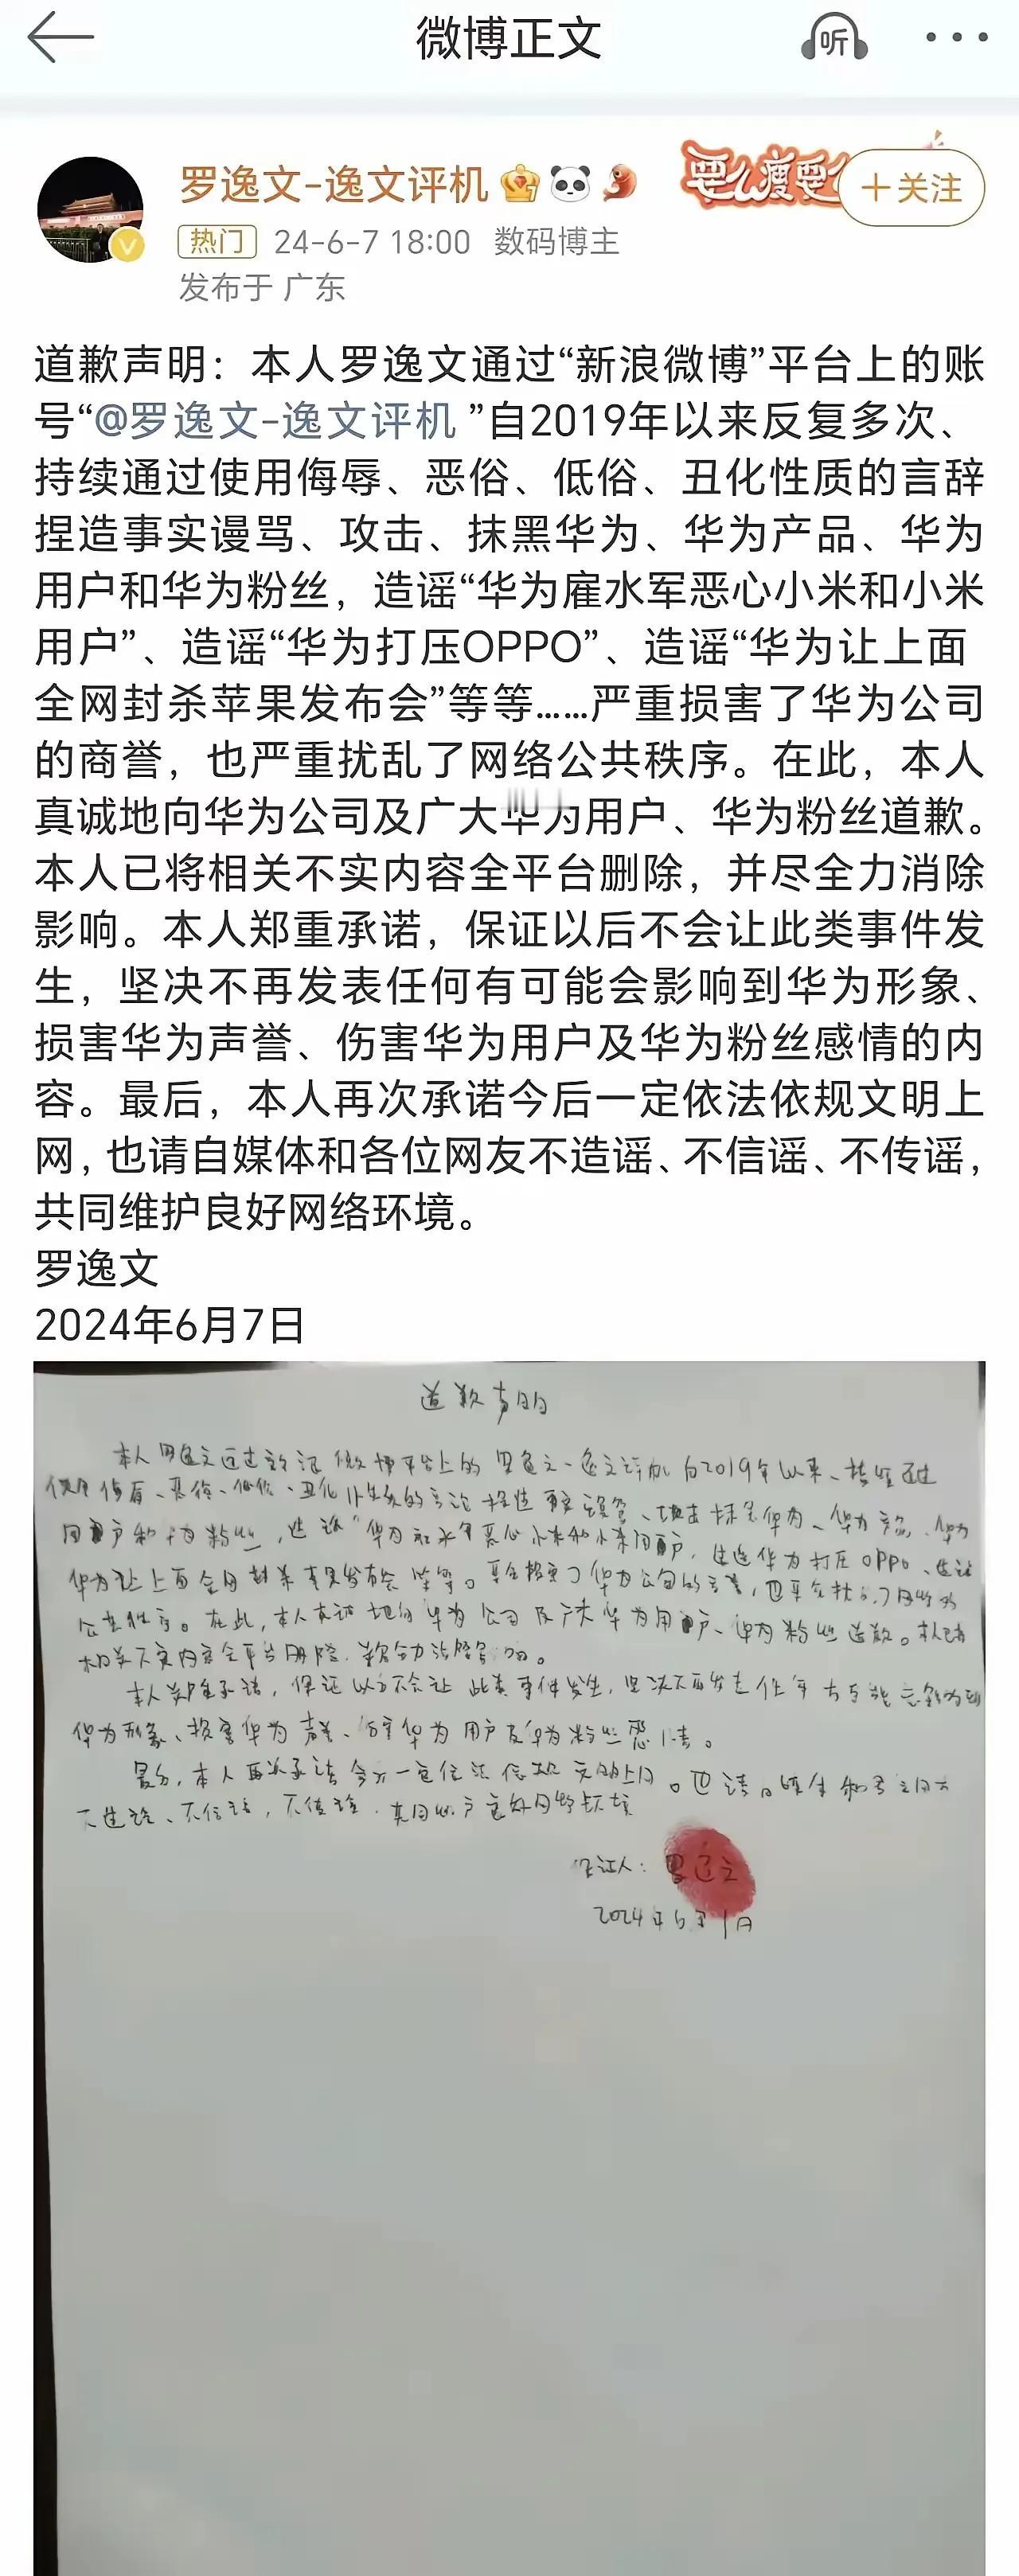 微博正文
听
罗逸文-逸文评机
要么瘦要么
+关注
热门 24-6-7 18:00 数码博主
发布于 广东
道歉声明：本人罗逸文通过“新浪微博”平台上的账
号“@罗逸文-逸文评机 ”自2019年以来反复多次、
持续通过使用侮辱、恶俗、低俗、丑化性质的言辞
捏造事实谩骂、攻击、抹黑华为、华为产品、华为
用户和华为粉丝，造谣“华为雇水军恶心小米和小米
用户”、造谣“华为打压OPPO”、造谣“华为让上面
全网封杀苹果发布会”等等……严重损害了华为公司
的商誉，也严重扰乱了网络公共秩序。在此，本人
真诚地向华为公司及广大华为用户、华为粉丝道歉。
本人已将相关不实内容全平台删除，并尽全力消除
影响。本人郑重承诺，保证以后不会让此类事件发
生，坚决不再发表任何有可能会影响到华为形象、
损害华为声誉、伤害华为用户及华为粉丝感情的内
容。最后，本人再次承诺今后一定依法依规文明上
网，也请自媒体和各位网友不造谣、不信谣、不传谣，
共同维护良好网络环境。
罗逸文
2024年6月7日
道歉声明
本人罗逸文通过 微博平台上的 罗逸文-逸文评机 自2019年以来、持续通过
使用侮辱、恶俗、低俗、丑化 的言论 捏造事实谩骂、攻击抹黑华为、华为产品、华为
用户和华为粉丝，造谣“华为 水军恶心小米和小米用户，造谣华为打压OPPO、造谣
华为让上面全网封杀苹果发布会等等。严重损害了华为公司的 ，也严重扰乱了网络
公共秩序。在此，本人真诚地向华为公司及广大华为用户、华为粉丝道歉。本人已将
相关不实内容全平台删除，
本人郑重承诺，保证以后不会让此类事件发生，坚决不再发表任何有可能会影响到
华为形象、损害华为声誉、伤害华为用户及华为粉丝感情。
最后，本人再次承诺今后一定依法依规文明上网。也请
不造谣、不信谣，不传谣，共同维护良好网络环境
保证人：罗逸文
2024年6月 日